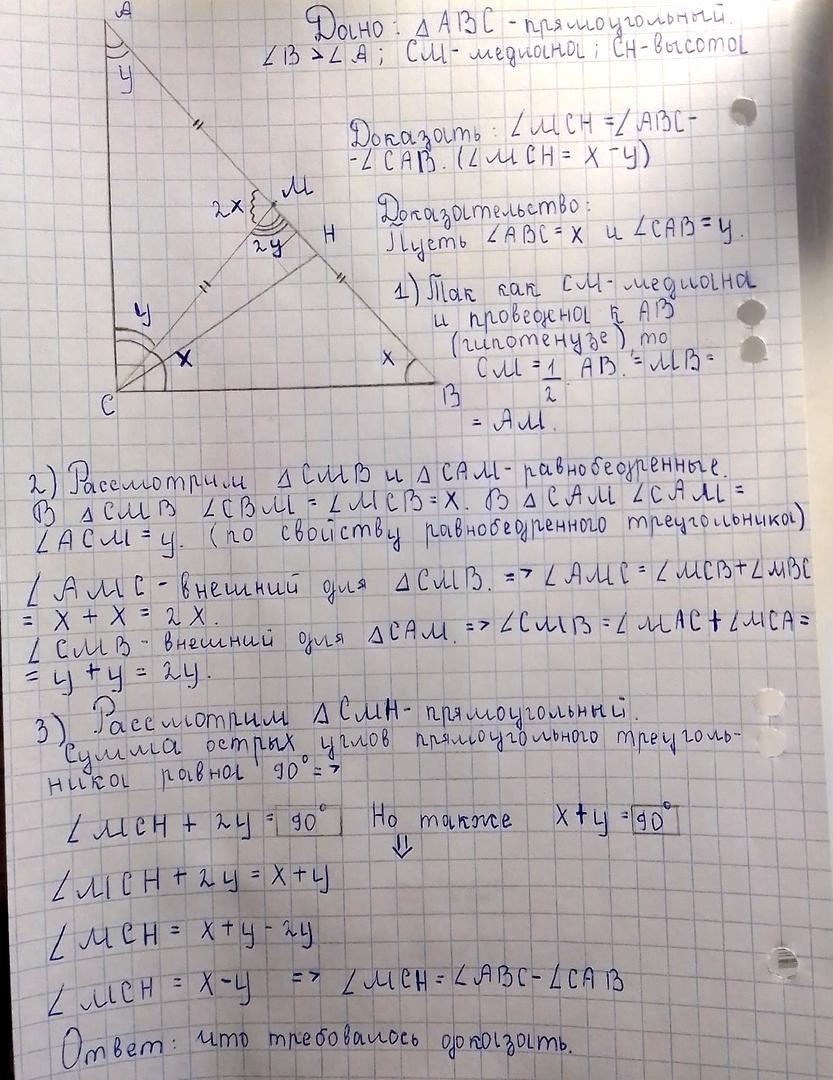 A
Дано: △ABC - прямоугольный.
∠B > ∠A; CM - медиана; CH - высота
y
Доказать: ∠MCH = ∠ABC -
- ∠CAB. (∠MCH = x - y)
M
2x
H
2y
Доказательство:
Пусть ∠ABC = x и ∠CAB = y.
1) Так как CM - медиана
и проведена к AB
(гипотенузе) то
CM = 1/2 AB. = MB =
= AM.
y
x
x
C
B
2) Рассмотрим △CMB и △CAM - равнобедренные.
В △CMB ∠CBM = ∠MCB = x. В △CAM ∠CAM =
∠ACM = y. (по свойству равнобедренного треугольника)
∠AMC - внешний для △CMB. => ∠AMC = ∠MCB + ∠MBC
= x + x = 2x.
∠CMB - внешний для △CAM. => ∠CMB = ∠MAC + ∠MCA =
= y + y = 2y.
3) Рассмотрим △CMH - прямоугольный.
Сумма острых углов прямоугольного треуголь-
ника равна 90° =>
∠MCH + 2y = 90° Но также x + y = 90°
⇓
∠MCH + 2y = x + y
∠MCH = x + y - 2y
∠MCH = x - y => ∠MCH = ∠ABC - ∠CAB
Ответ: что требовалось доказать.